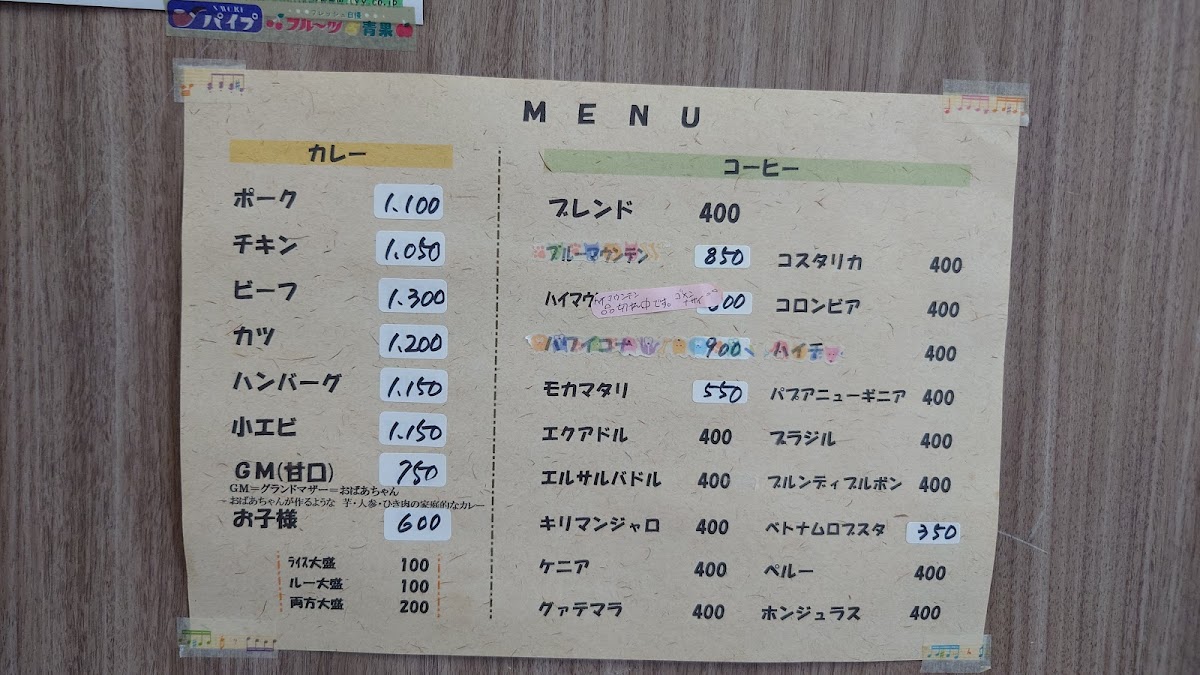 パイプ フレッシュ自慢 フルーツ 青果
MENU
カレー
ポーク 1.100
チキン 1.050
ビーフ 1.300
カツ 1.200
ハンバーグ 1.150
小エビ 1.150
GM(甘口) 750
GM=グランドマザー=おばあちゃん
おばあちゃんが作るような 芋・人参・ひき肉の家庭的なカレー
お子様 600
ライス大盛 100
ルー大盛 100
両方大盛 200
コーヒー
ブレンド 400
ブルーマウンテン 850
ハイマウ
ハイマウンテン
品切れ中です。ゴメンナサイ
ハワイコナ 900
モカマタリ 550
エクアドル 400
エルサルバドル 400
キリマンジャロ 400
ケニア 400
グァテマラ 400
コスタリカ 400
コロンビア 400
ハイチ 400
パプアニューギニア 400
ブラジル 400
ブルンディブルボン 400
ベトナムロブスタ 350
ペルー 400
ホンジュラス 400